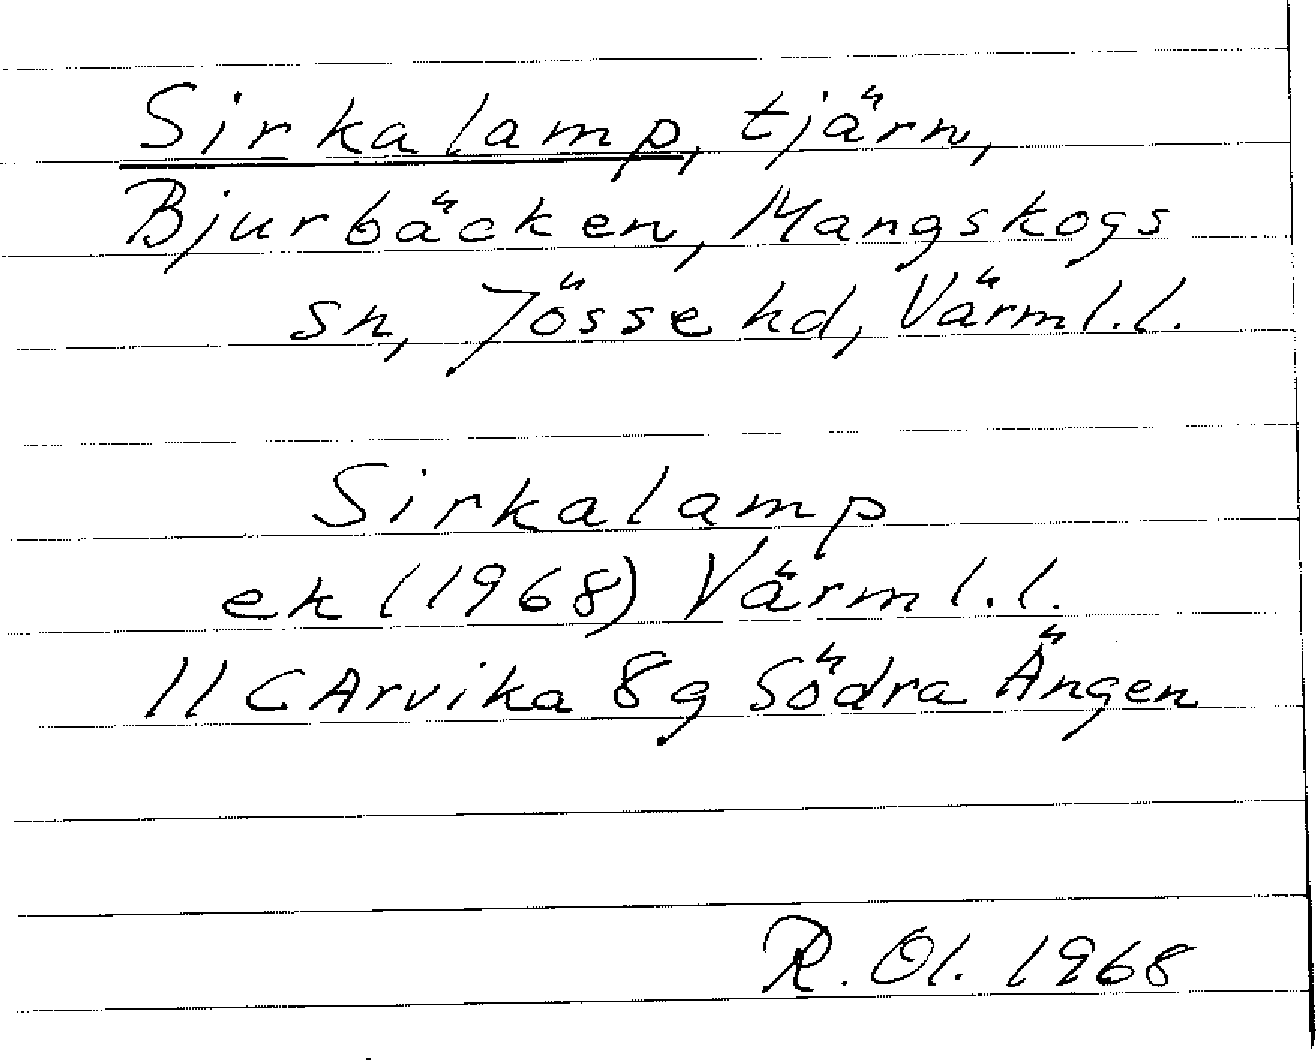 Sirkalamp, tjärn,
Bjurbäcken, Mangskogs
sn, Jösse hd, Värml.l.
Sirkalamp
ek (1968) Värml.l.
11 C Arvika 8g Södra Ängen
R. Ol. 1968